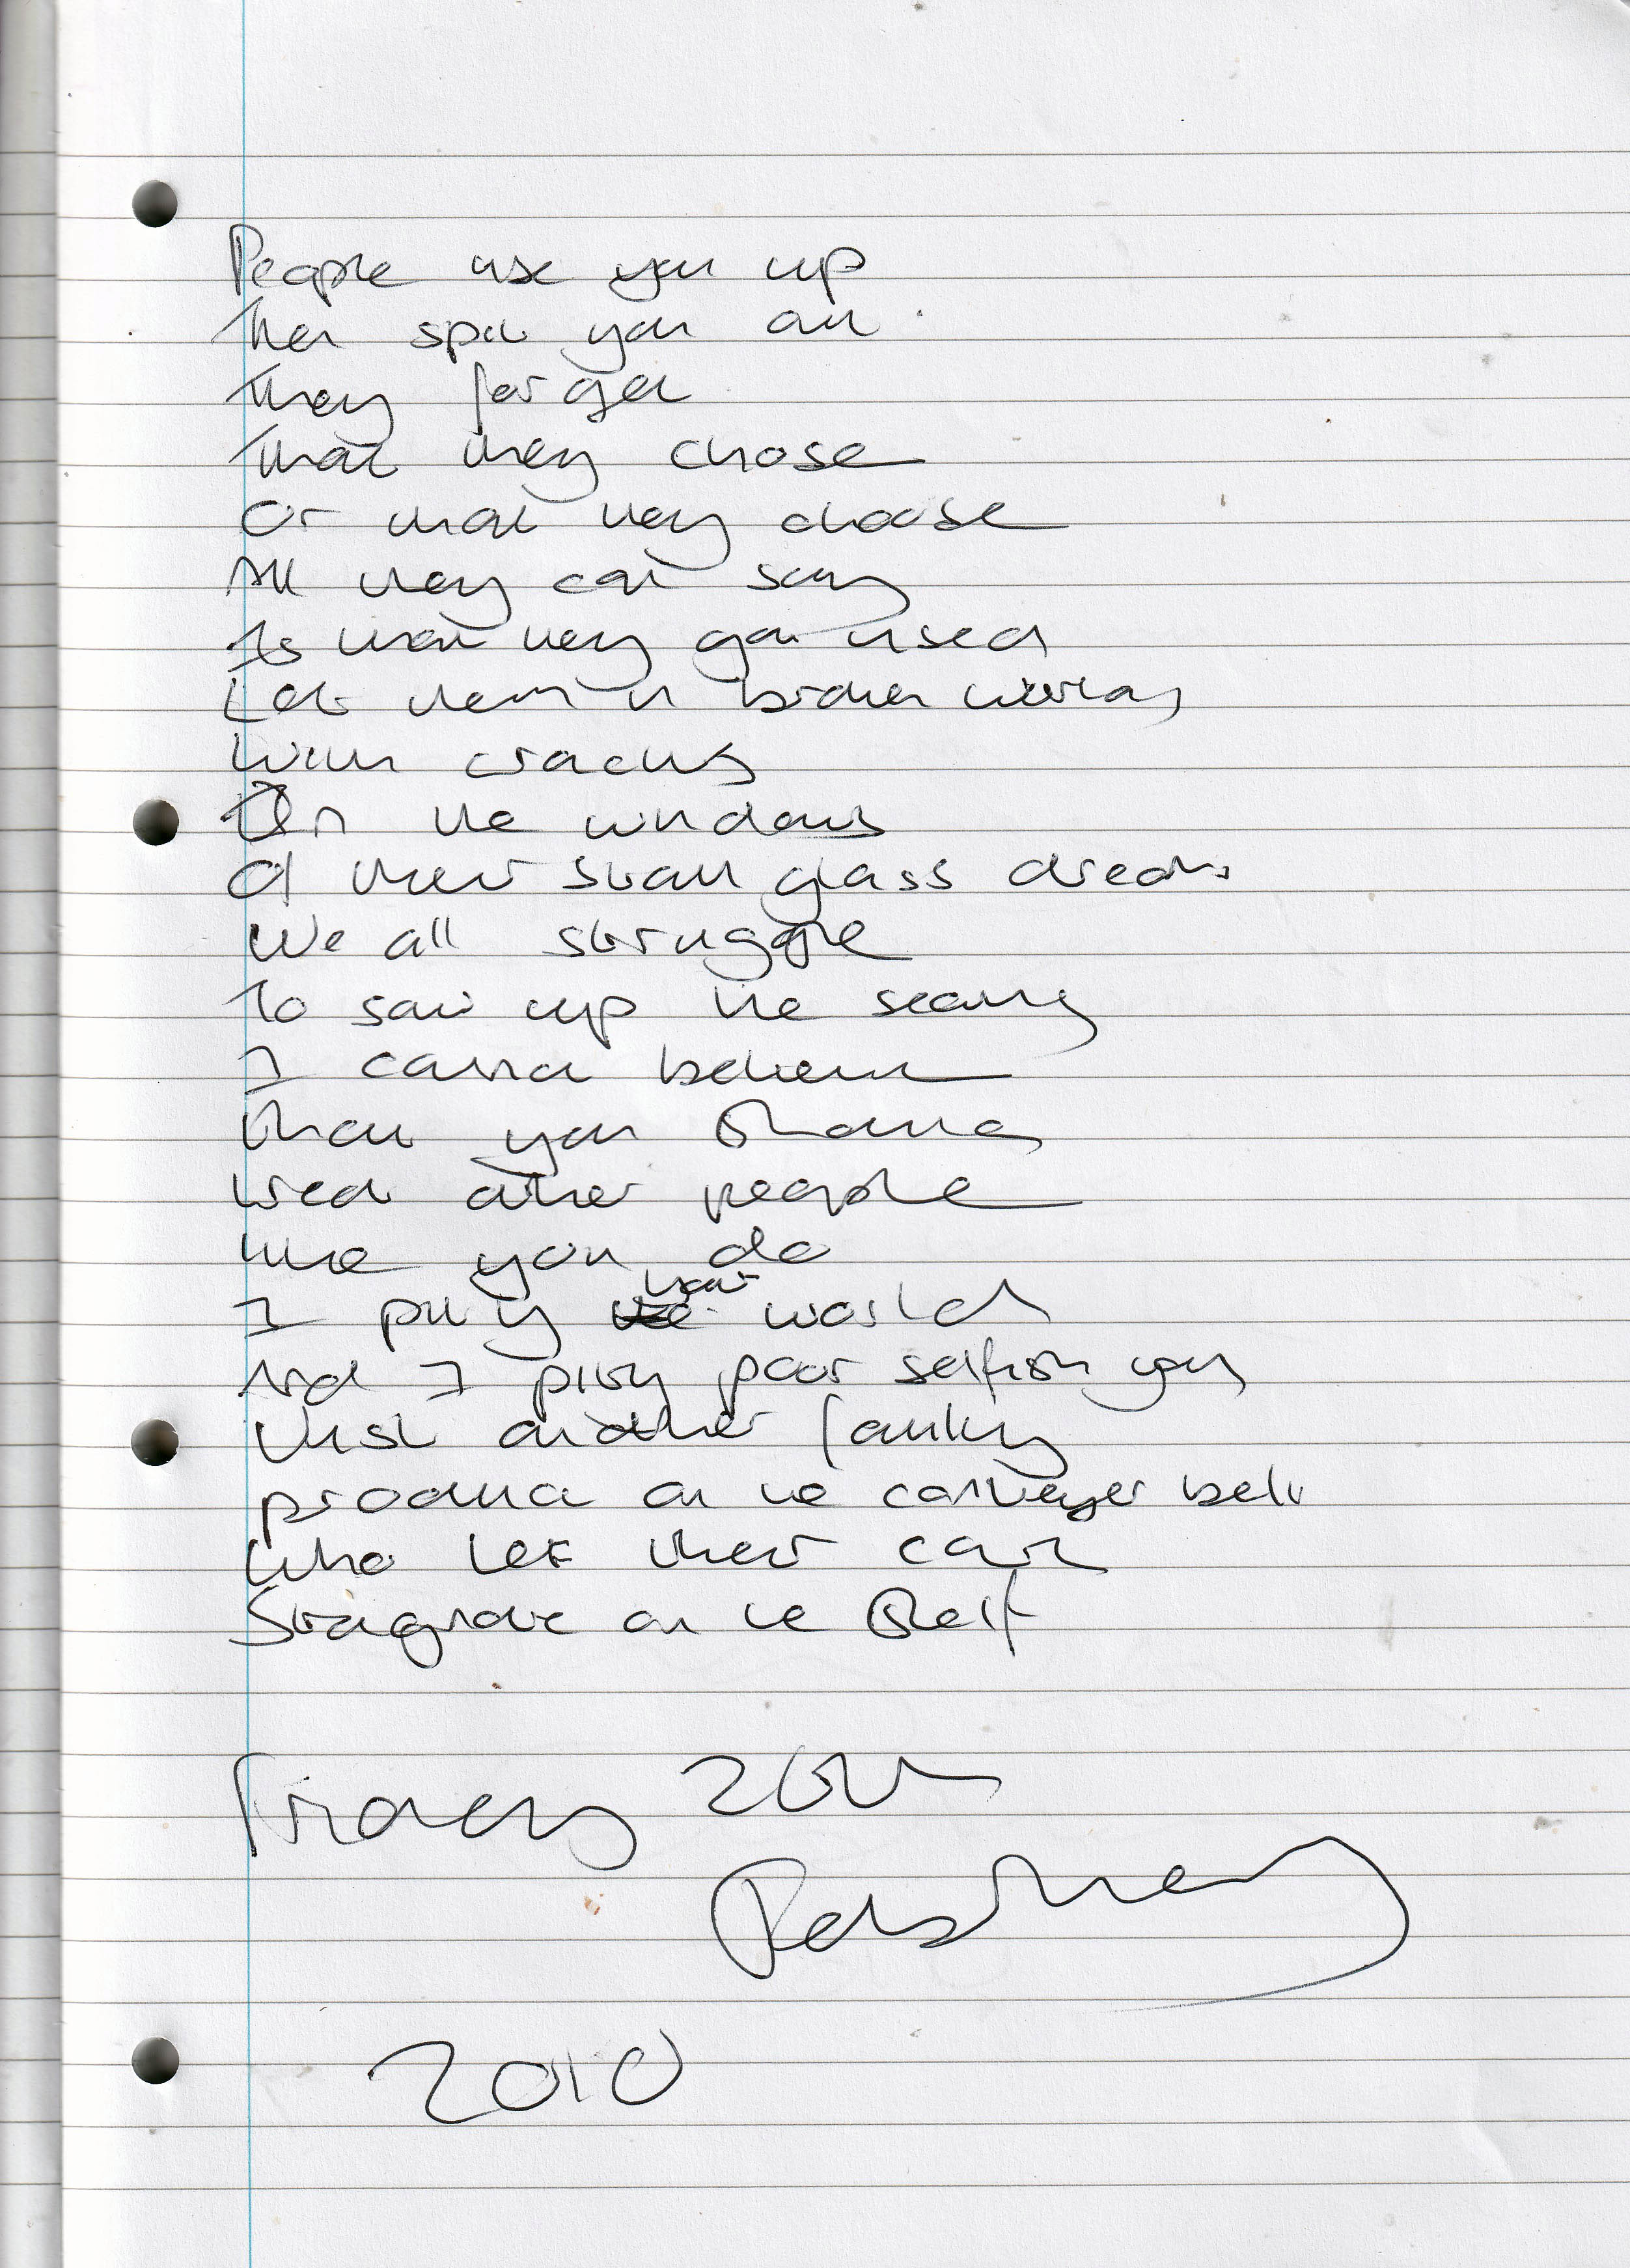 People use you up
Then spit you out
They forget
That they chose
Or what they choose
All they can say
Is that they got used
Left them in broken worlds
With cracks
In the windows
Of their small glass dreams
We all struggle
To sew up the seams
I cannot believe
That you
treat other people
like you do
I pity your world
And I pity poor selfish you
Just another faulty
product on the conveyer belt
Who left their
Stagnate on the
Tracey
2010